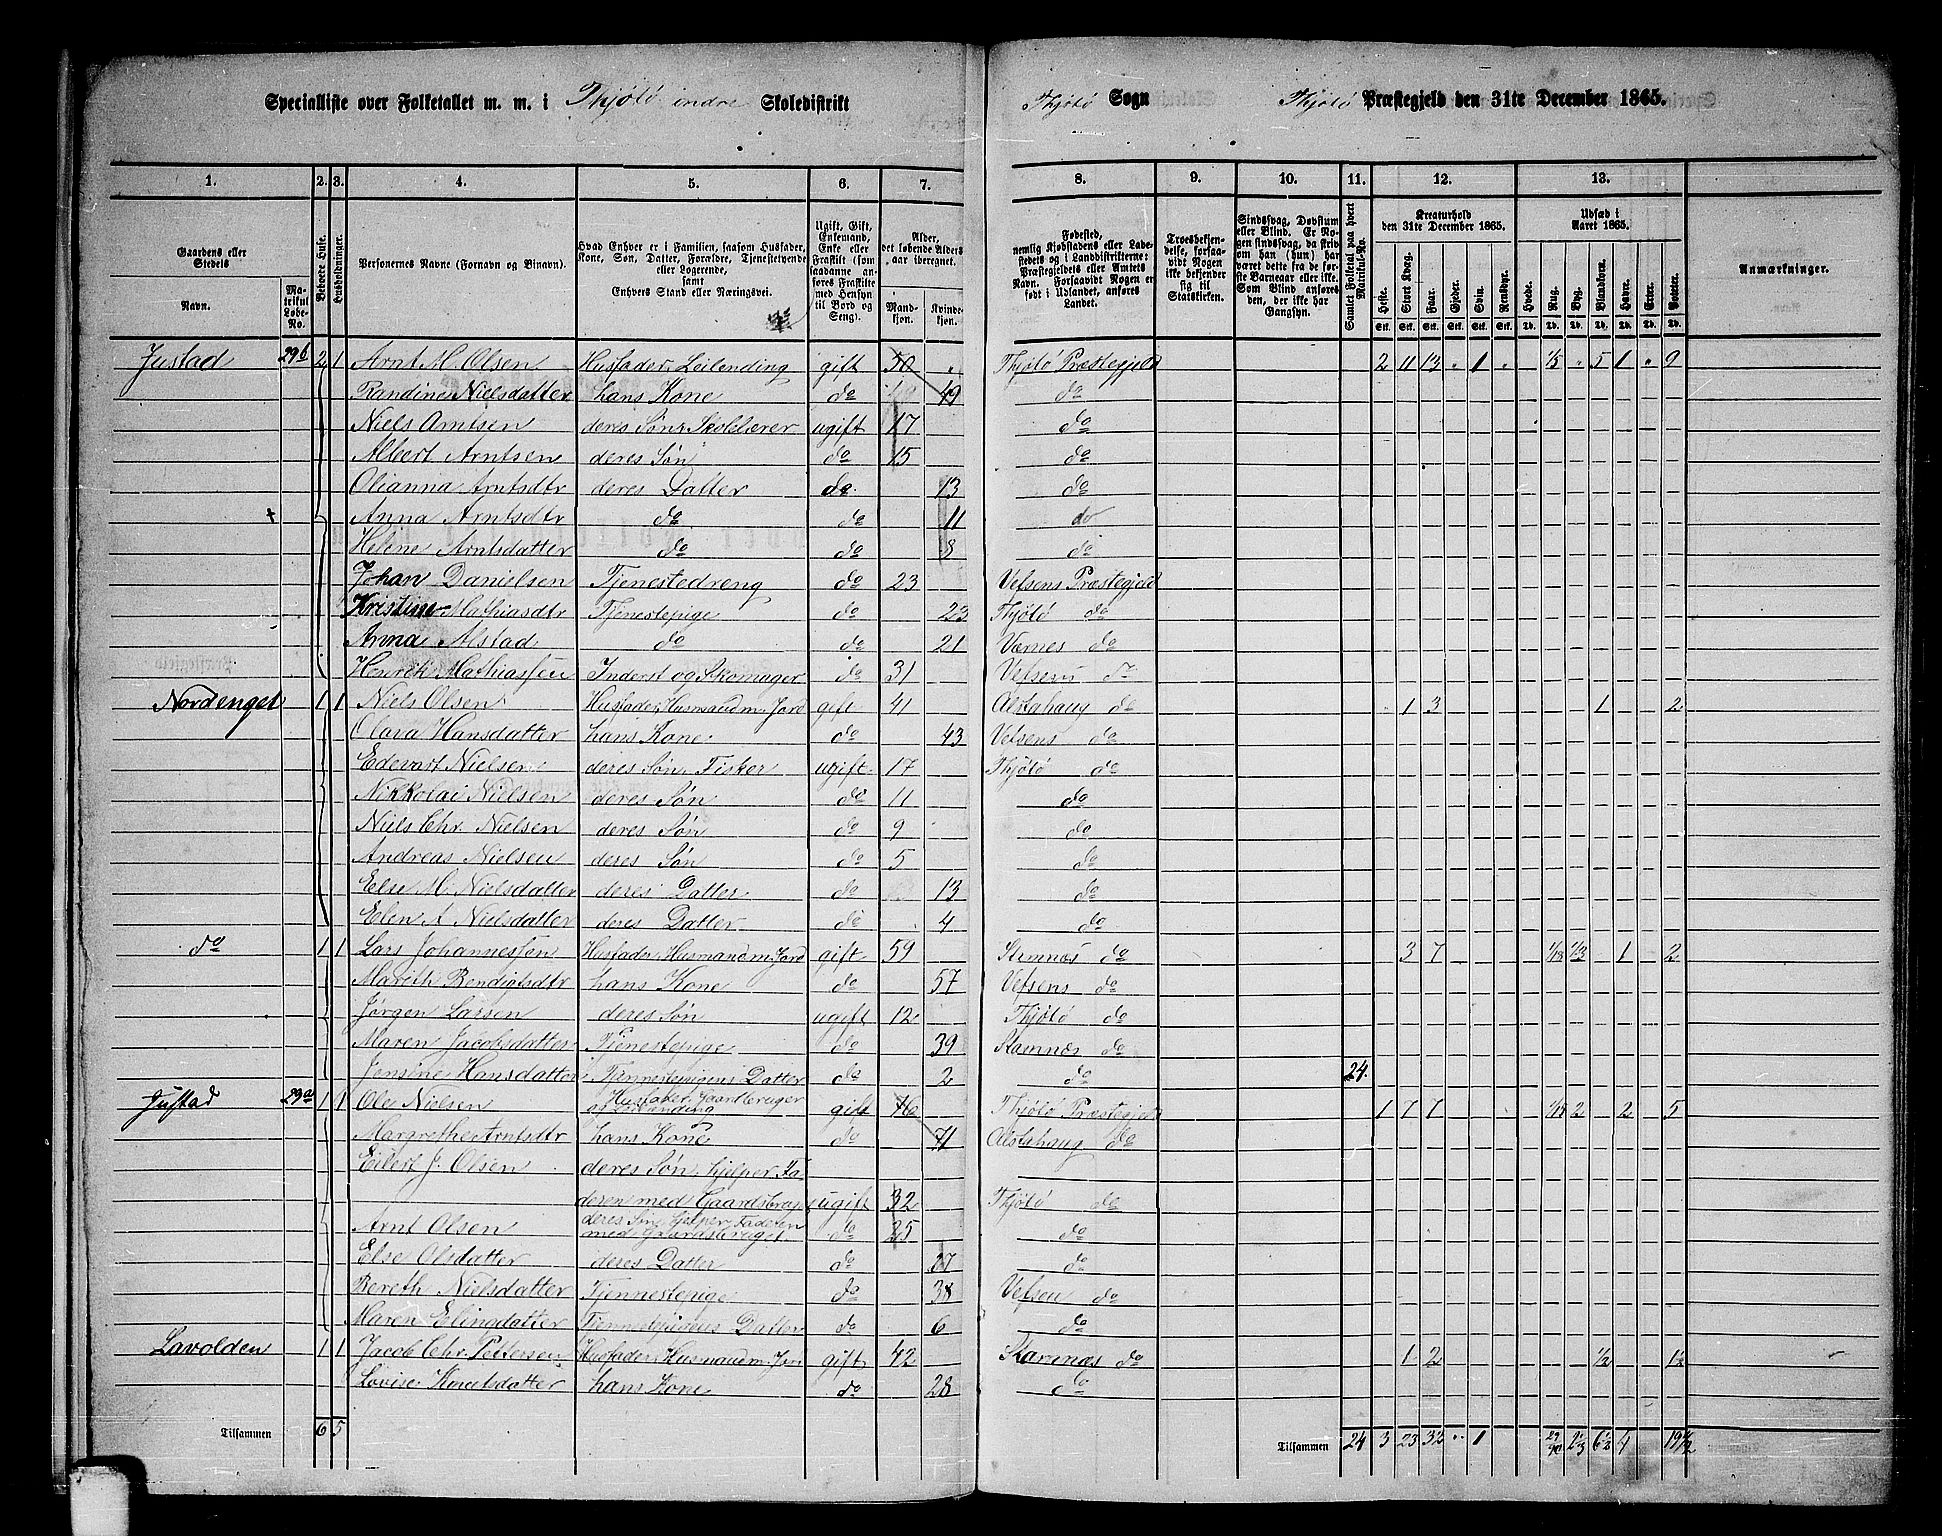 Specialliste over Folketallet m. m. i Thjøtø indre Skoledistrikt Thjøtø Sogn Thjøtø Præstegjeld den 31te December 1865.
1. 2. 3. 4. 5. 6. 7. 8. 9. 10. 11. 12. 13.
Gaardens eller Stedets
Navn.
Matrikul Løbe-No.
Beboede Huse.
Husholdninger.
Personernes Navne (Fornavn og Binavn).
Hvad Enhver er i Familien, saasom Husfader, Kone, Søn, Datter, Forældre, Tjenestetyende eller Logerende, samt Enhvers Stand eller Næringsvei.
Ugift, Gift, Enkemand, Enke eller Fraskilt (som saadanne anføres Fraskilte med Hensyn til Bord og Seng).
Alder, det løbende Alders-aar iberegnet.
Mandkjøn.
Kvindekjøn.
Fødested, nemlig Kjøbstadens eller Ladestedets og i Landdistrikterne: Præstegjeldets eller Amtets Navn. Forsaavidt Nogen er født i Udlandet, anføres Landet.
Troesbekjendelse, forsaavidt Nogen ikke bekjender sig til Statskirken.
Sindssvag, Døvstum eller Blind. Er Nogen sindssvag, da skrives om han (hun) har været dette fra de første Barneaar eller ikke. Som Blind anføres den, der ikke har Gangsyn.
Samlet Folketal paa hvert Matrikul-No.
Kreaturhold den 31te December 1865.
Heste. Stort Kvæg. Faar. Gjeder. Svin. Rensdyr.
Udsæd i Aaret 1865.
Hvede. Rug. Byg. Blandkorn. Havre. Erter. Poteter.
Anmærkninger.
Justad 29b 2 1 Arnt M. Olsen Husfader, Leilending gift 50 Thjøtø Præstegjeld 2 11 13 " 1 " 1/5 " 5 1 " 9
Randine Nielsdatter hans Kone do 49 do
Niels Arntsen deres Søn, Skolelærer ugift 17 do
Albert Arntsen deres Søn do 15 do
Olianna Arntsdtr deres Datter do 13 do
Anna Arntsdtr do do 11 do
Helene Arntsdatter do do 8 do
Johan Danielsen Tjenestedreng do 23 Vefsens Præstegjeld
Kristine Mathiasdtr Tjenestepige do 23 Thjøtø do
Anna Alstad do do 21 Værnes do
Henrik Mathiassen Inderst og Skomager do 31 Vefsens do
Nordenget 1 1 Niels Olsen Husfader, Husmand m. Jord gift 41 Alstahaug do 1 3 1 2
Olava Hansdatter hans Kone do 43 Vefsens do
Edevart Nielsen deres Søn, Fisker ugift 17 Thjøtø do
Nikkolai Nielsen deres Søn do 11 do
Niels Chr. Nielsen deres Søn do 9 do
Andreas Nielsen deres Søn do 5 do
Else M. Nielsdatter deres Datter do 13 do
Elen A Nielsdatter deres Datter do 4 do
do 1 1 Lars Johannessen Husfader, Husmand m. Jord gift 59 Stamnæs do 3 7 1/13 1/3 1 2
Mareth Bendigtsdtr hans Kone do 57 Vefsens do
Jørgen Larsen deres Søn ugift 12 Thjøtø do
Maren Jacobsdatter Tjenestepige do 39 Stamnæs do
Jensine Hansdatter Tjennestepigens Datter do 2 do 24.
Justad 29a 1 1 Ole Nielsen Husfader, Gaardbruger og Leilending gift 76 Thjøtø Præstegjeld 1 7 7 2 2 5
Margrethe Arntsdtr hans Kone do 71 Alstahaug do
Eilert J. Olsen deres Søn, hjelper Fa-
deren med Gaardsbruget ugift 32 Thjøtø do
Arnt Olsen deres Søn, hjelper Faderen med Gaardsbruget do 25 do
Else Olsdatter deres Datter do 37 do
Bereth Nielsdatter Tjennestepige do 38 Vefsen do
Maren Elingdatter Tjennestepigens Datter do 6 do
Lavolden 1 1 Jacob Chr. Pettersen Husfader, Husmand m. Jord gift 42 Stamnæs do 1 2 1/2 1 1/2
Lovise Knutsdatter hans Kone do 28 do
Tilsammen 6 5 Tilsammen 24 3 23 32 " 1 2 1/3 6 1/2 4 19 1/2